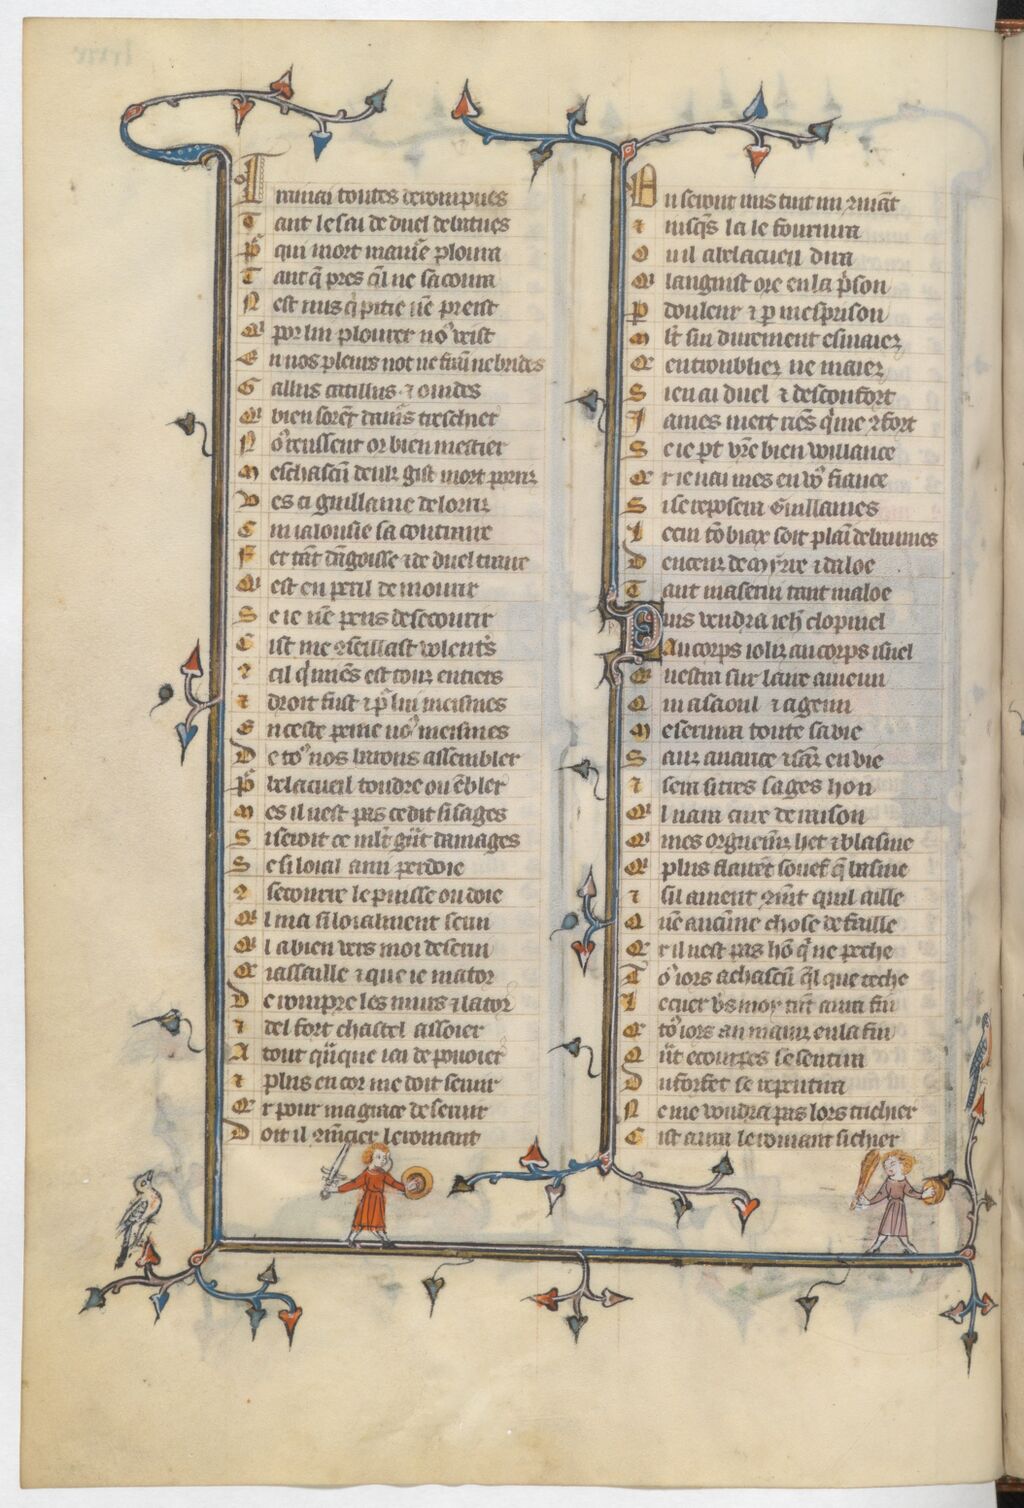 I m'i ai toutes derompues
T ant le sai de duel debatues
P̃ qui mort ma mẽ ploura
T ant q̃ pres q̃l ne sacoura
N est nus q̃ pitie nẽ preist
Q̃ por lui plourer no⁹ veist
E n nos pleurs not ne frain ne brides
G allus catillus ⁊ ouides
Q̃ bien sorẽt damᵒˢ treschiet
N o⁹ reussent or bien mestier
M es chascũ deulz gist mort porriz
V es ci guillaume de lorriz
C ui ialousie sa contraire
F et tãt dãgoisse ⁊ de duel traire
Q̃ est en peril de mourir
S e ie nẽ pens de secourir
C ist me ꝯseillast volentˢ
⁊ cil q̃ miẽs est touz entiers
⁊ droit fust ⁊ p̃ lui meismes
E n ceste peine no⁹ meismes
D e to⁹ nos barons assembler
P̃ belacueil toudre ou ẽbler
M es il nest pas ce dit si sages
S i seroit ce mlt̃ gñt damages
S e si loial ami perdoie
⁊ secourre le puisse ou doie
Q̃ l ma si loialment serui
Q̃ l a bien vers moi deserui
Q̃ iassaille ⁊ que ie mator
D e rompre les murs ⁊ la tor
⁊ del fort chastel assoier
A tout qũque iai de pouoier
⁊ plus encor me doit seruir
C̃ r pour ma grace deseruir
D oit il ꝯmcier le romant
O u seront mis tuit mi ꝯmãt
⁊ iusqˢ la le fournira
O u il a belacueil dira
Q̃ languist ore en la p̃son
P douleur ⁊ p mesprison
M lt̃ sui durement esmaiez
Q̃ entroublie ne maiez
S i en ai duel ⁊ desconfort
J ames niert riẽs q̃ me ꝯfort
S e ie pt vr̃e bien vuillance
C̃ r ie nai mes en vo⁹ fiance
S i se reposera Guillaumes
L e cui tõbiax soit plaĩ de baumes
D encens de myrre ⁊ daloe
T ant ma serui tant ma loe
P uis vendra iehˢ clopinel
A u corps iolis au corps isnel
Q̃ nestra sur laire a meun
Q̃ i a saoul ⁊ a geun
M e seruira toute sa vie
S anz auarice ⁊ sãz enuie
⁊ sera si tres sages hon
Q̃ l naura cure de raison
Q̃ mes orgueniz het ⁊ blasme
Q̃ plus flairẽt souef q̃ basme
⁊ sil auient ꝯmt quil aille
Q̃ nẽ aucune chose defaille
C̃ r il nest pas hõ q̃ ne peche
T o⁹iors a chascũ q̃l que teche
L e cuer vˢ moy tãt aura fin
Q̃ to⁹iors au mainz en la fin
Q ñt ecourpes se sentira
D u forfet se repentira
N e me voudra pas lors trichier
C ist aura le romant si chier